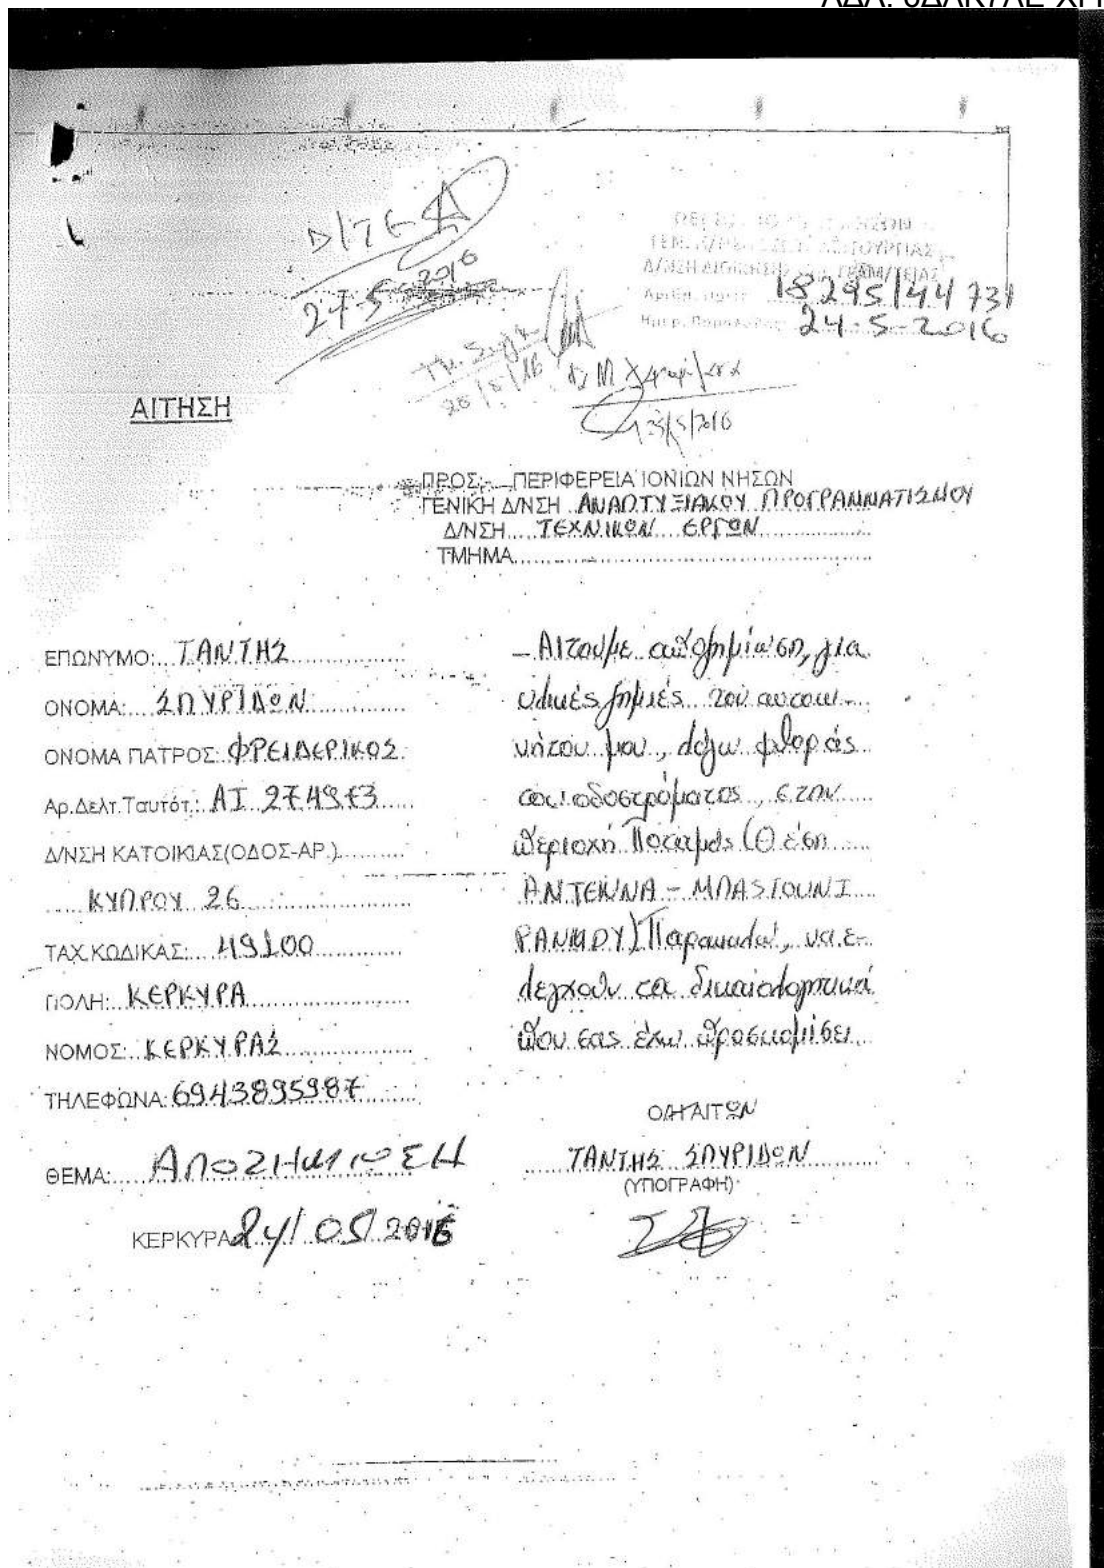 Δ/ΤΕ
27-5-2016
18295/44731
24-5-2016
25/5/16
23/5/2016
ΑΙΤΗΣΗ
ΠΡΟΣ: ΠΕΡΙΦΕΡΕΙΑ ΙΟΝΙΩΝ ΝΗΣΩΝ
ΓΕΝΙΚΗ Δ/ΝΣΗ ΑΝΑΠΤΥΞΙΑΚΟΥ ΠΡΟΓΡΑΜΜΑΤΙΣΜΟΥ
Δ/ΝΣΗ.....ΤΕΧΝΙΚΩΝ ΕΡΓΩΝ
ΤΜΗΜΑ
ΕΠΩΝΥΜΟ: ΤΑΝΤΗΣ
ΟΝΟΜΑ: ΣΠΥΡΙΔΩΝ
ΟΝΟΜΑ ΠΑΤΡΟΣ: ΦΡΕΙΔΕΡΙΚΟΣ
Αρ.Δελτ.Ταυτότ.: ΑΙ 274973
Δ/ΝΣΗ ΚΑΤΟΙΚΙΑΣ(ΟΔΟΣ-ΑΡ.)
ΚΥΠΡΟΥ 26
ΤΑΧ.ΚΩΔΙΚΑΣ: 49100
ΠΟΛΗ: ΚΕΡΚΥΡΑ
ΝΟΜΟΣ: ΚΕΡΚΥΡΑΣ
ΤΗΛΕΦΩΝΑ: 6943895987
ΘΕΜΑ: ΑΠΟΖΗΜΙΩΣΗ
ΚΕΡΚΥΡΑ 24/05/2016
- Αιτούμε αποζημίωση, για
υλικές ζημιές τού αυτοκι-
νήτου μου, λόγω φθοράς
του οδοστρόματος, στην
περιοχή Ποταμός (Θέση
ΑΝΤΕΝΝΑ - ΜΠΑΣΤΟΥΝΙ
ΡΑΝΜΟΥ) Παρακαλώ, να ε-
λεγχούν τα δικαιολογητικά
που σας έχω προσκομίσει
Ο/Η ΑΙΤΩΝ
ΤΑΝΤΗΣ ΣΠΥΡΙΔΩΝ
(ΥΠΟΓΡΑΦΗ)